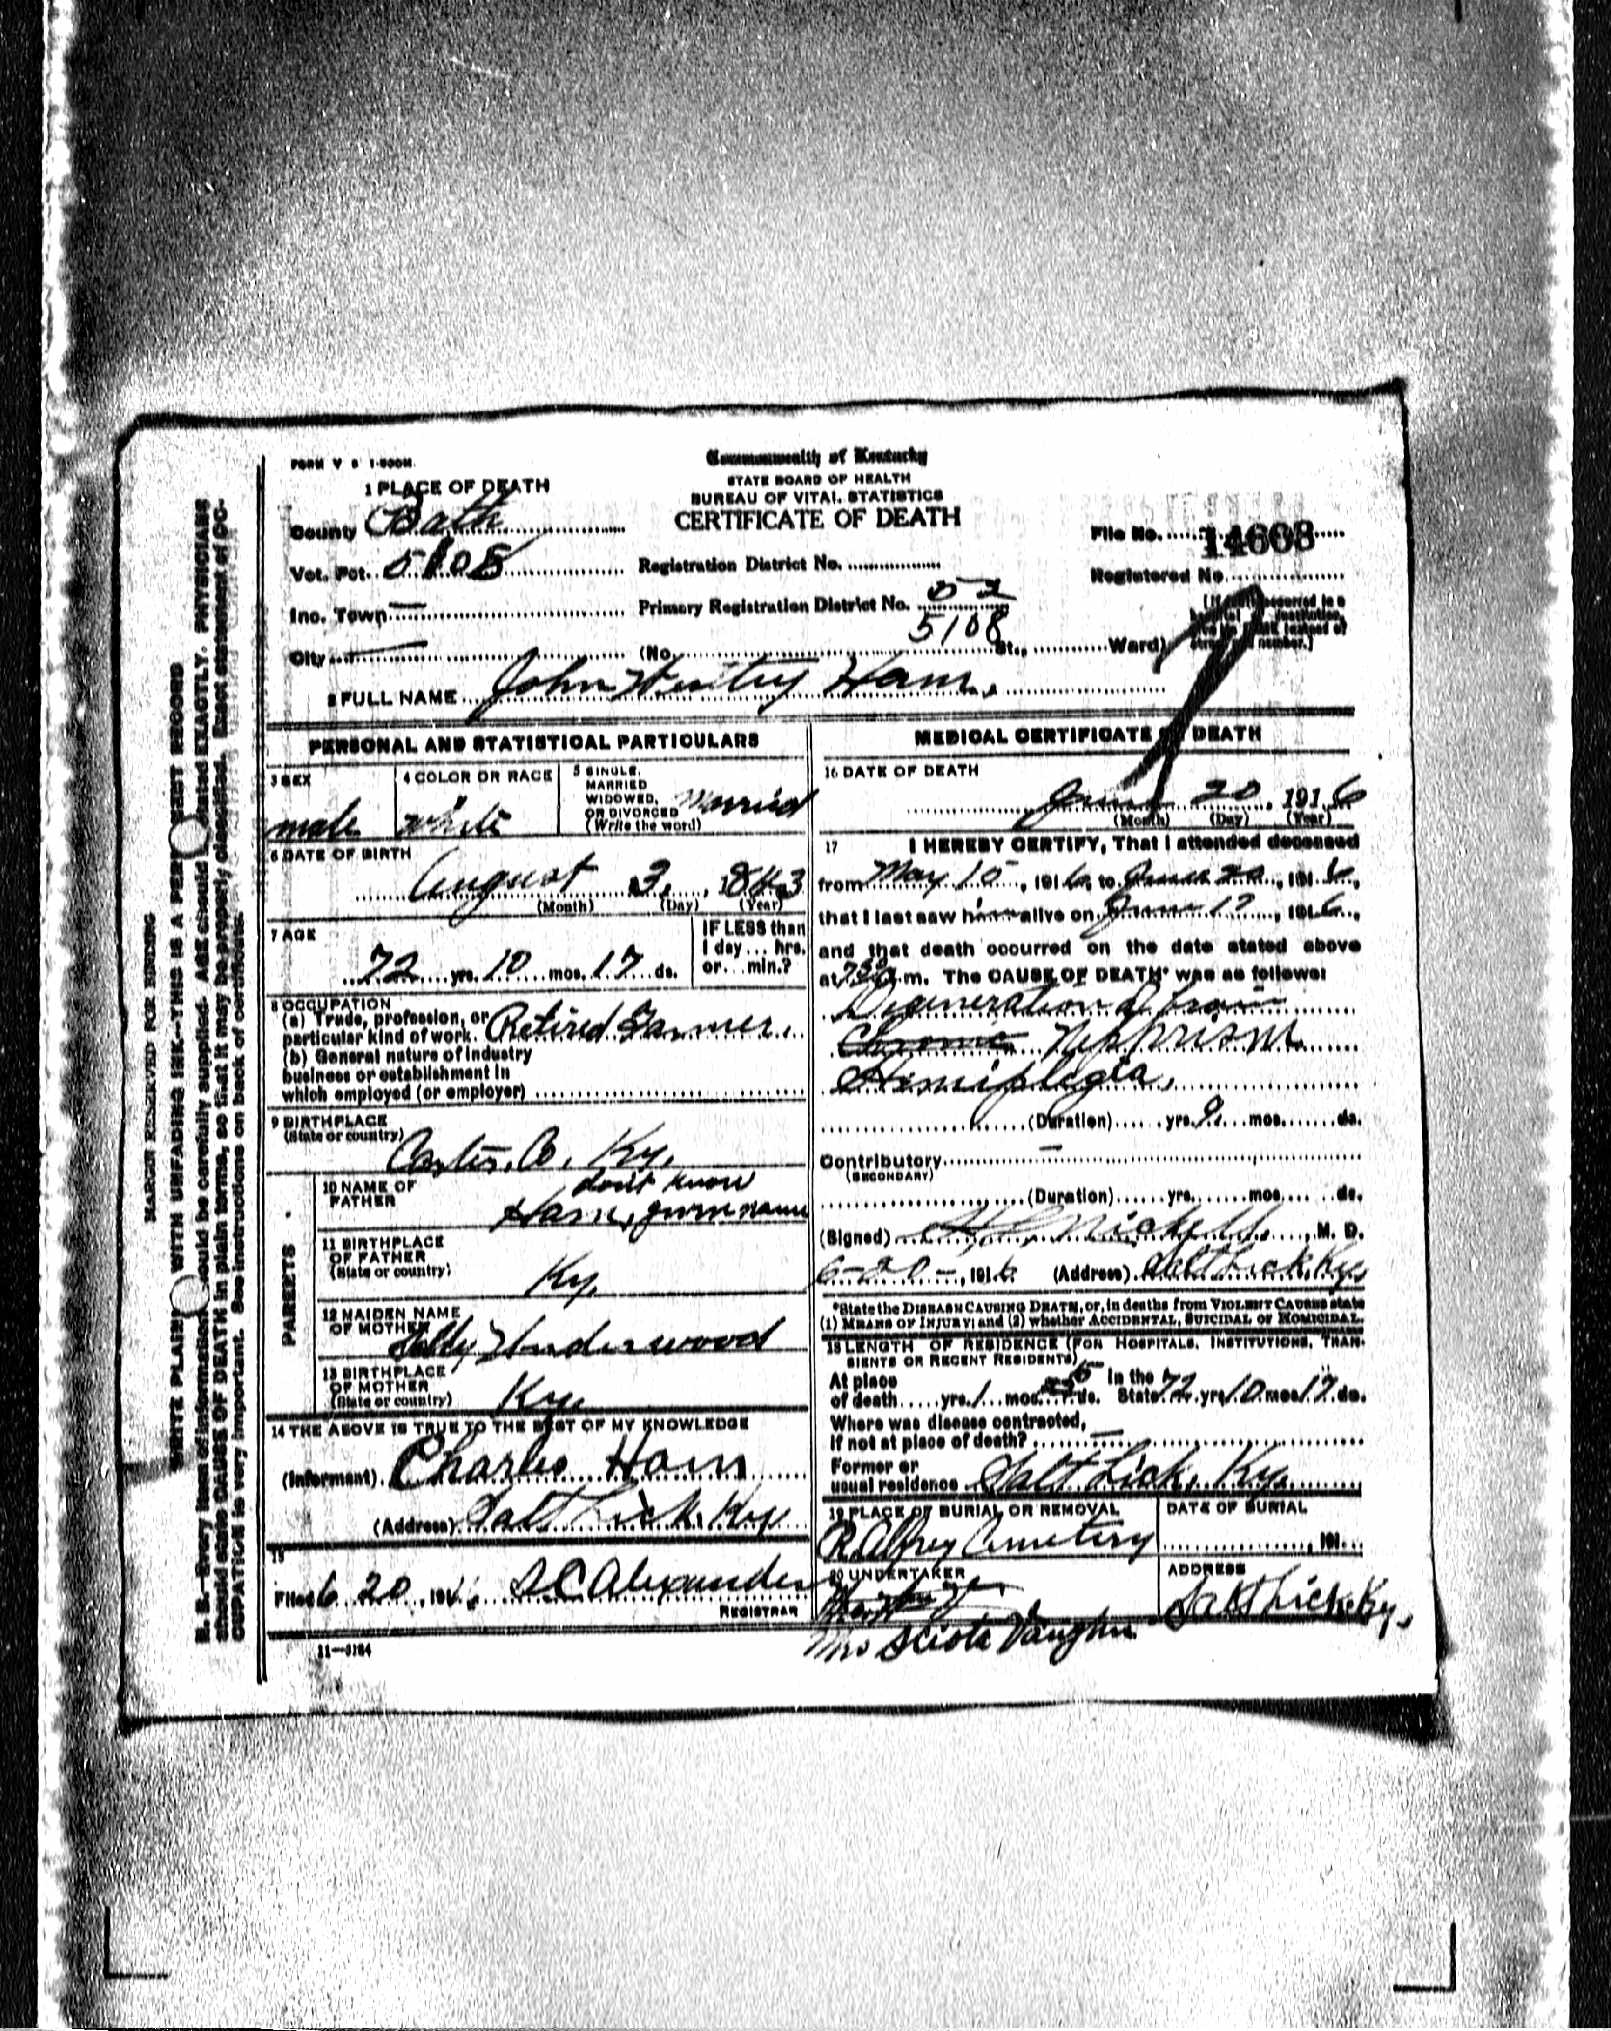 FORM V S 1-500M.
Commonwealth of Kentucky
STATE BOARD OF HEALTH
BUREAU OF VITAL STATISTICS
CERTIFICATE OF DEATH
1 PLACE OF DEATH
County Bath
Vot. Pct. 5108
Inc. Town —
City —
Registration District No.
Primary Registration District No. 52
5108
(No. St., Ward)
File No. 14608
Registered No.
2 FULL NAME John Ham.
PERSONAL AND STATISTICAL PARTICULARS
3 SEX
male
4 COLOR OR RACE
white
5 SINGLE,
MARRIED
WIDOWED,
OR DIVORCED
(Write the word)
Married
6 DATE OF BIRTH
August 3, 1843
(Month) (Day) (Year)
7 AGE
72 yrs. 10 mos. 17 ds.
IF LESS than
1 day ... hrs.
or ... min.?
8 OCCUPATION
(a) Trade, profession, or
particular kind of work. Retired Farmer.
(b) General nature of industry
business or establishment in
which employed (or employer)
9 BIRTHPLACE
(State or country)
Carter. Co. Ky.
PARENTS
10 NAME OF
FATHER
don't know
Ham, given name
11 BIRTHPLACE
OF FATHER
(State or country)
Ky.
12 MAIDEN NAME
OF MOTHER
Underwood
13 BIRTHPLACE
OF MOTHER
(State or country)
Ky.
14 THE ABOVE IS TRUE TO THE BEST OF MY KNOWLEDGE
(Informant) Charles Ham
(Address) Salt Lick, Ky
15
Filed 6 20, 1916 Alexander
REGISTRAR
11—3184
MEDICAL CERTIFICATE OF DEATH
16 DATE OF DEATH
June 20, 1916
(Month) (Day) (Year)
17 I HEREBY CERTIFY, That I attended deceased
from May 15, 1916, to June 20, 1916,
that I last saw him alive on June 17, 1916,
and that death occurred on the date stated above
at 730 m. The CAUSE OF DEATH* was as follows:
Degeneration from
Chronic
Hemiplegia,
(Duration) yrs. 9 mos. ds.
Contributory —
(SECONDARY)
(Duration) yrs. mos. ds.
(Signed) Nickell, M. D.
6-20-, 1916 (Address) Salt Lick Ky,
*State the DISEASE CAUSING DEATH, or, in deaths from VIOLENT CAUSES state
(1) MEANS OF INJURY; and (2) whether ACCIDENTAL, SUICIDAL or HOMICIDAL.
18 LENGTH OF RESIDENCE (FOR HOSPITALS, INSTITUTIONS, TRAN-
SIENTS OR RECENT RESIDENTS)
At place In the
of death yrs. 1 mos. 5 ds. State 72 yrs 10 mos 17 ds.
Where was disease contracted,
If not at place of death? —
Former or
usual residence Salt Lick, Ky.
19 PLACE OF BURIAL OR REMOVAL
Alfrey Cemetery
DATE OF BURIAL
, 191
20 UNDERTAKER
Mrs Vaughn
ADDRESS
Salt Lick Ky,
MARGIN RESERVED FOR BINDING
WITH UNFADING INK—THIS IS A
should be carefully supplied. AGE should stated EXACTLY. PHYSICIANS
should state CAUSE OF DEATH in plain terms, so that it may be properly classified. Exact statement of OC-
CUPATION is very important. See instructions on back of certificate.